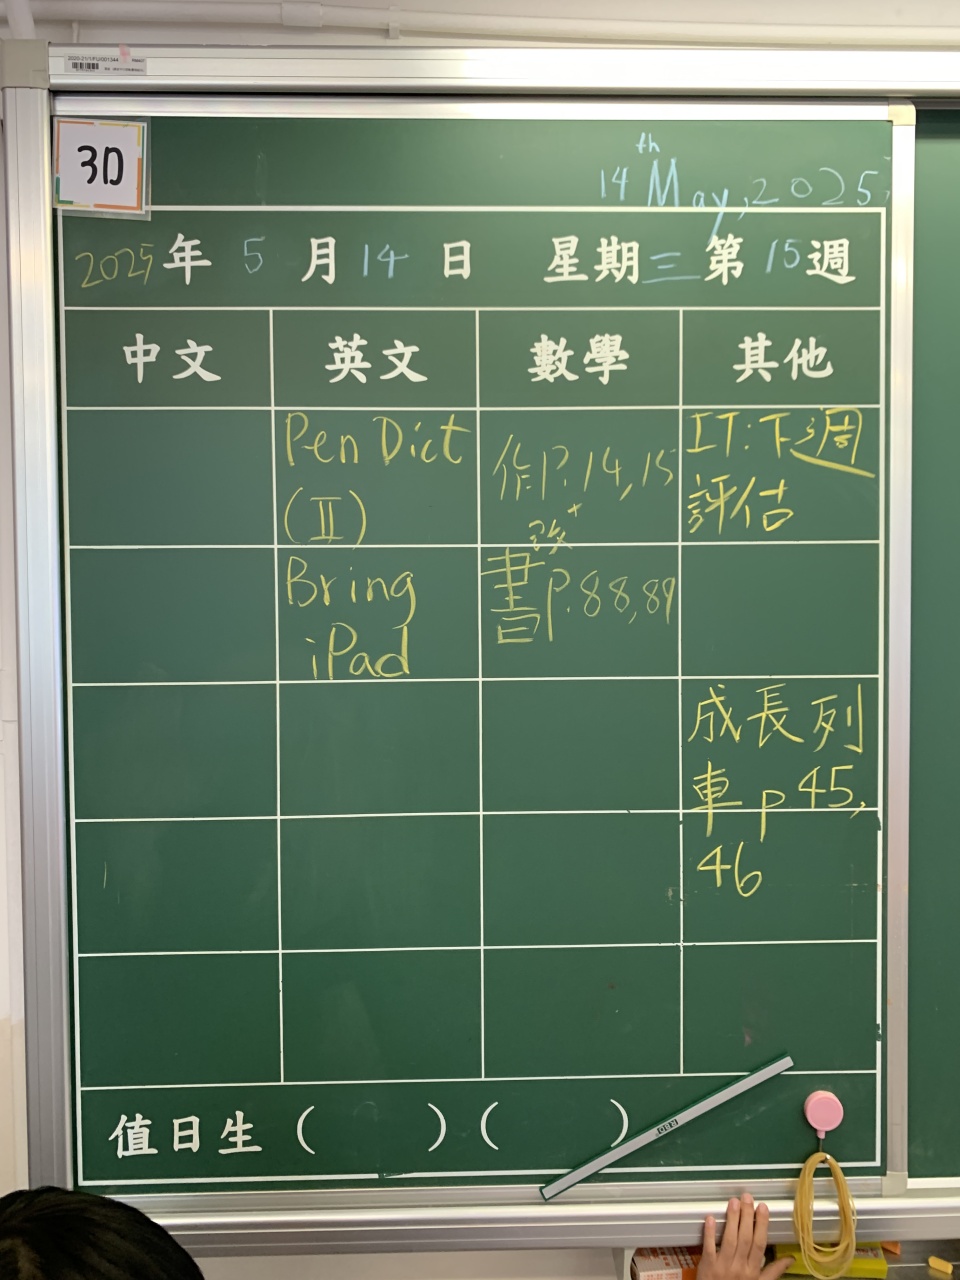 3D
14th May, 2025
2025年 5 月 14 日 星期三 第 15 週
中文 英文 數學 其他
Pen Dict
(II)
作P.14,15
IT:下週
評估
Bring
iPad
改+
書P.88,89
成長列
車 p 45,
46
值日生 ( ) ( )